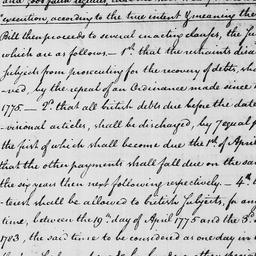 and good faith
execution, according to the true intent & meaning the
Bill then proceeds to several enacting clauses, the
which are as follows — 1st. that the restraints
subjects from prosecuting for the recovery of debts,
ved, by the repeal of an Ordinance made since
1775 — 2d. that all british debts due before the date
visional articles, shall be discharged, by 7 equal
the first of which shall become due the 1st of April
that the other payments shall fall due on the
the six years then next following respectively. — 4th
terest shall be allowed to british subjects, for
time, between the 19th day of April 1775 and the 3d
1783, the said time to be considered as one day in